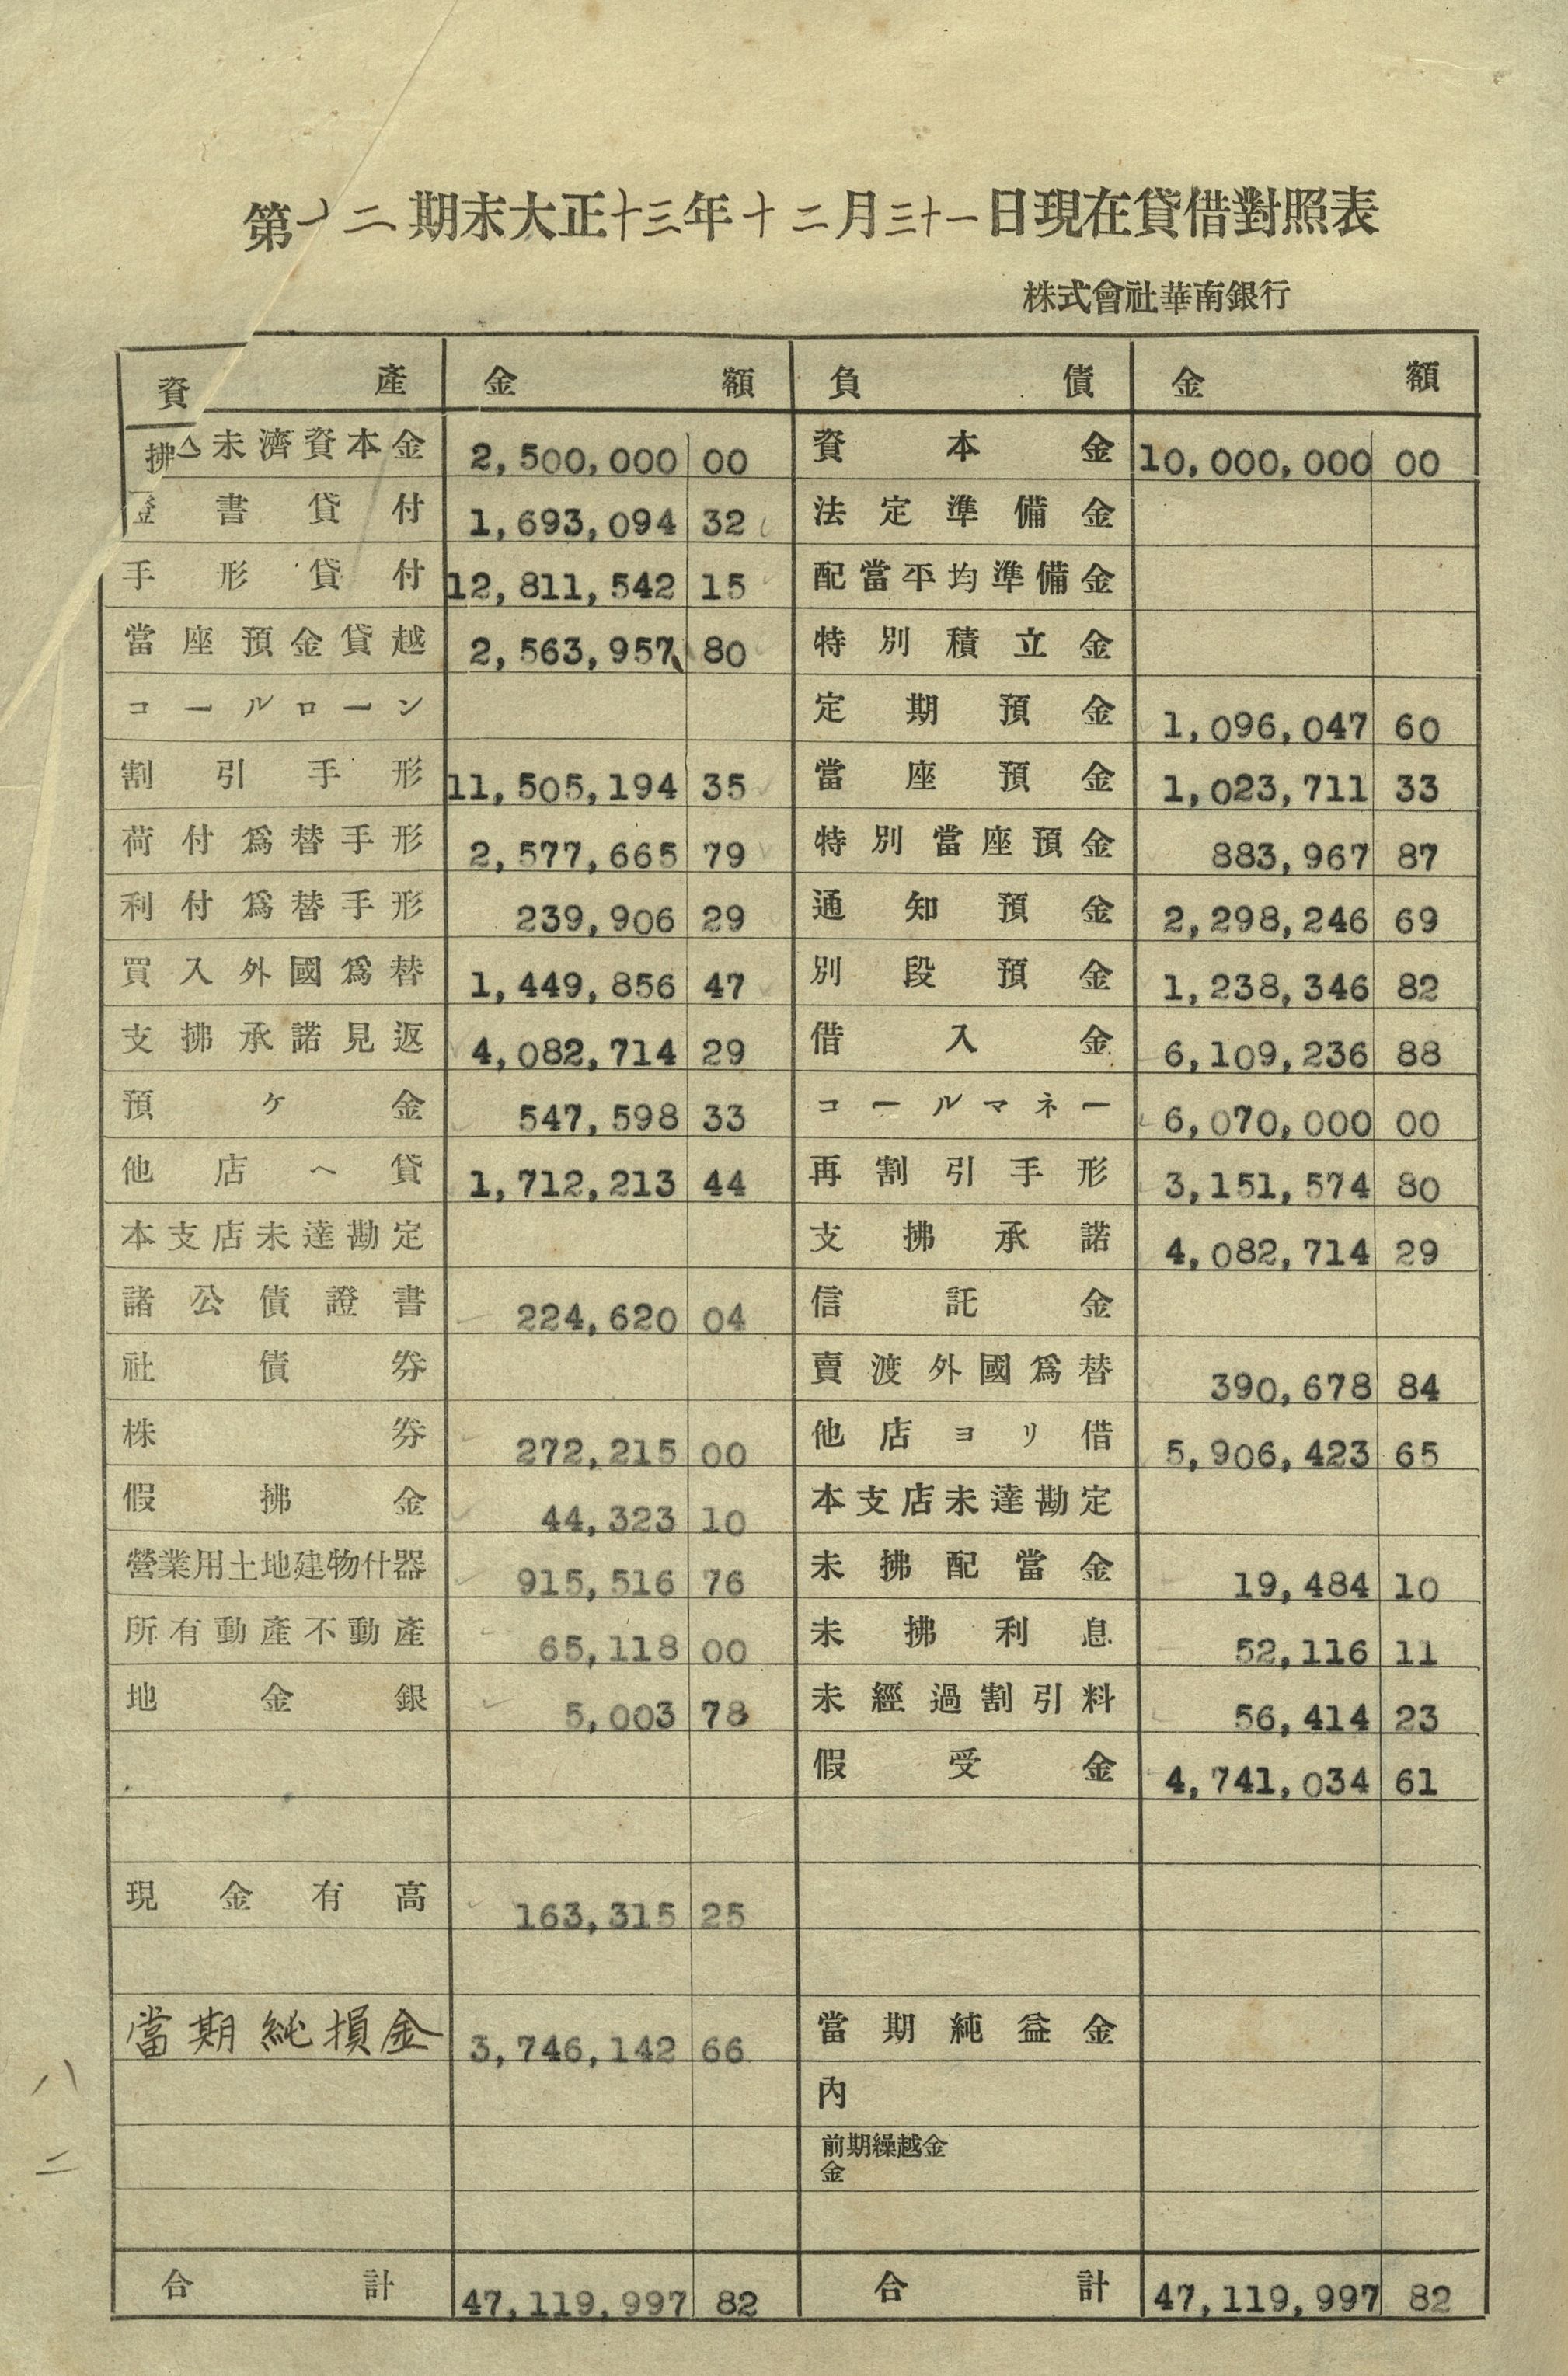 第十二期末大正十三年十二月三十一日現在貸借對照表
株式會社華南銀行
資產 金額 負債 金額
拂込未濟資本金 2,500,000 00 資本金 10,000,000 00
證書貸付 1,693,094 32 法定準備金
手形貸付 12,811,542 15 配當平均準備金
當座預金貸越 2,563,957 80 特別積立金
コールローン 定期預金 1,096,047 60
割引手形 11,505,194 35 當座預金 1,023,711 33
荷付爲替手形 2,577,665 79 特別當座預金 883,967 87
利付爲替手形 239,906 29 通知預金 2,298,246 69
買入外國爲替 1,449,856 47 別段預金 1,238,346 82
支拂承諾見返 4,082,714 29 借入金 6,109,236 88
預ケ金 547,598 33 コールマネー 6,070,000 00
他店へ貸 1,712,213 44 再割引手形 3,151,574 80
本支店未達勘定 支拂承諾 4,082,714 29
諸公債證書 224,620 04 信託金
社債券 賣渡外國爲替 390,678 84
株券 272,215 00 他店ヨリ借 5,906,423 65
假拂金 44,323 10 本支店未達勘定
營業用土地建物什器 915,516 76 未拂配當金 19,484 10
所有動產不動產 65,118 00 未拂利息 52,116 11
地金銀 5,003 78 未經過割引料 56,414 23
假受金 4,741,034 61
現金有高 163,315 25
當期純損金 3,746,142 66 當期純益金
八
內
二
前期繰越金
金
合計 47,119,997 82 合計 47,119,997 82